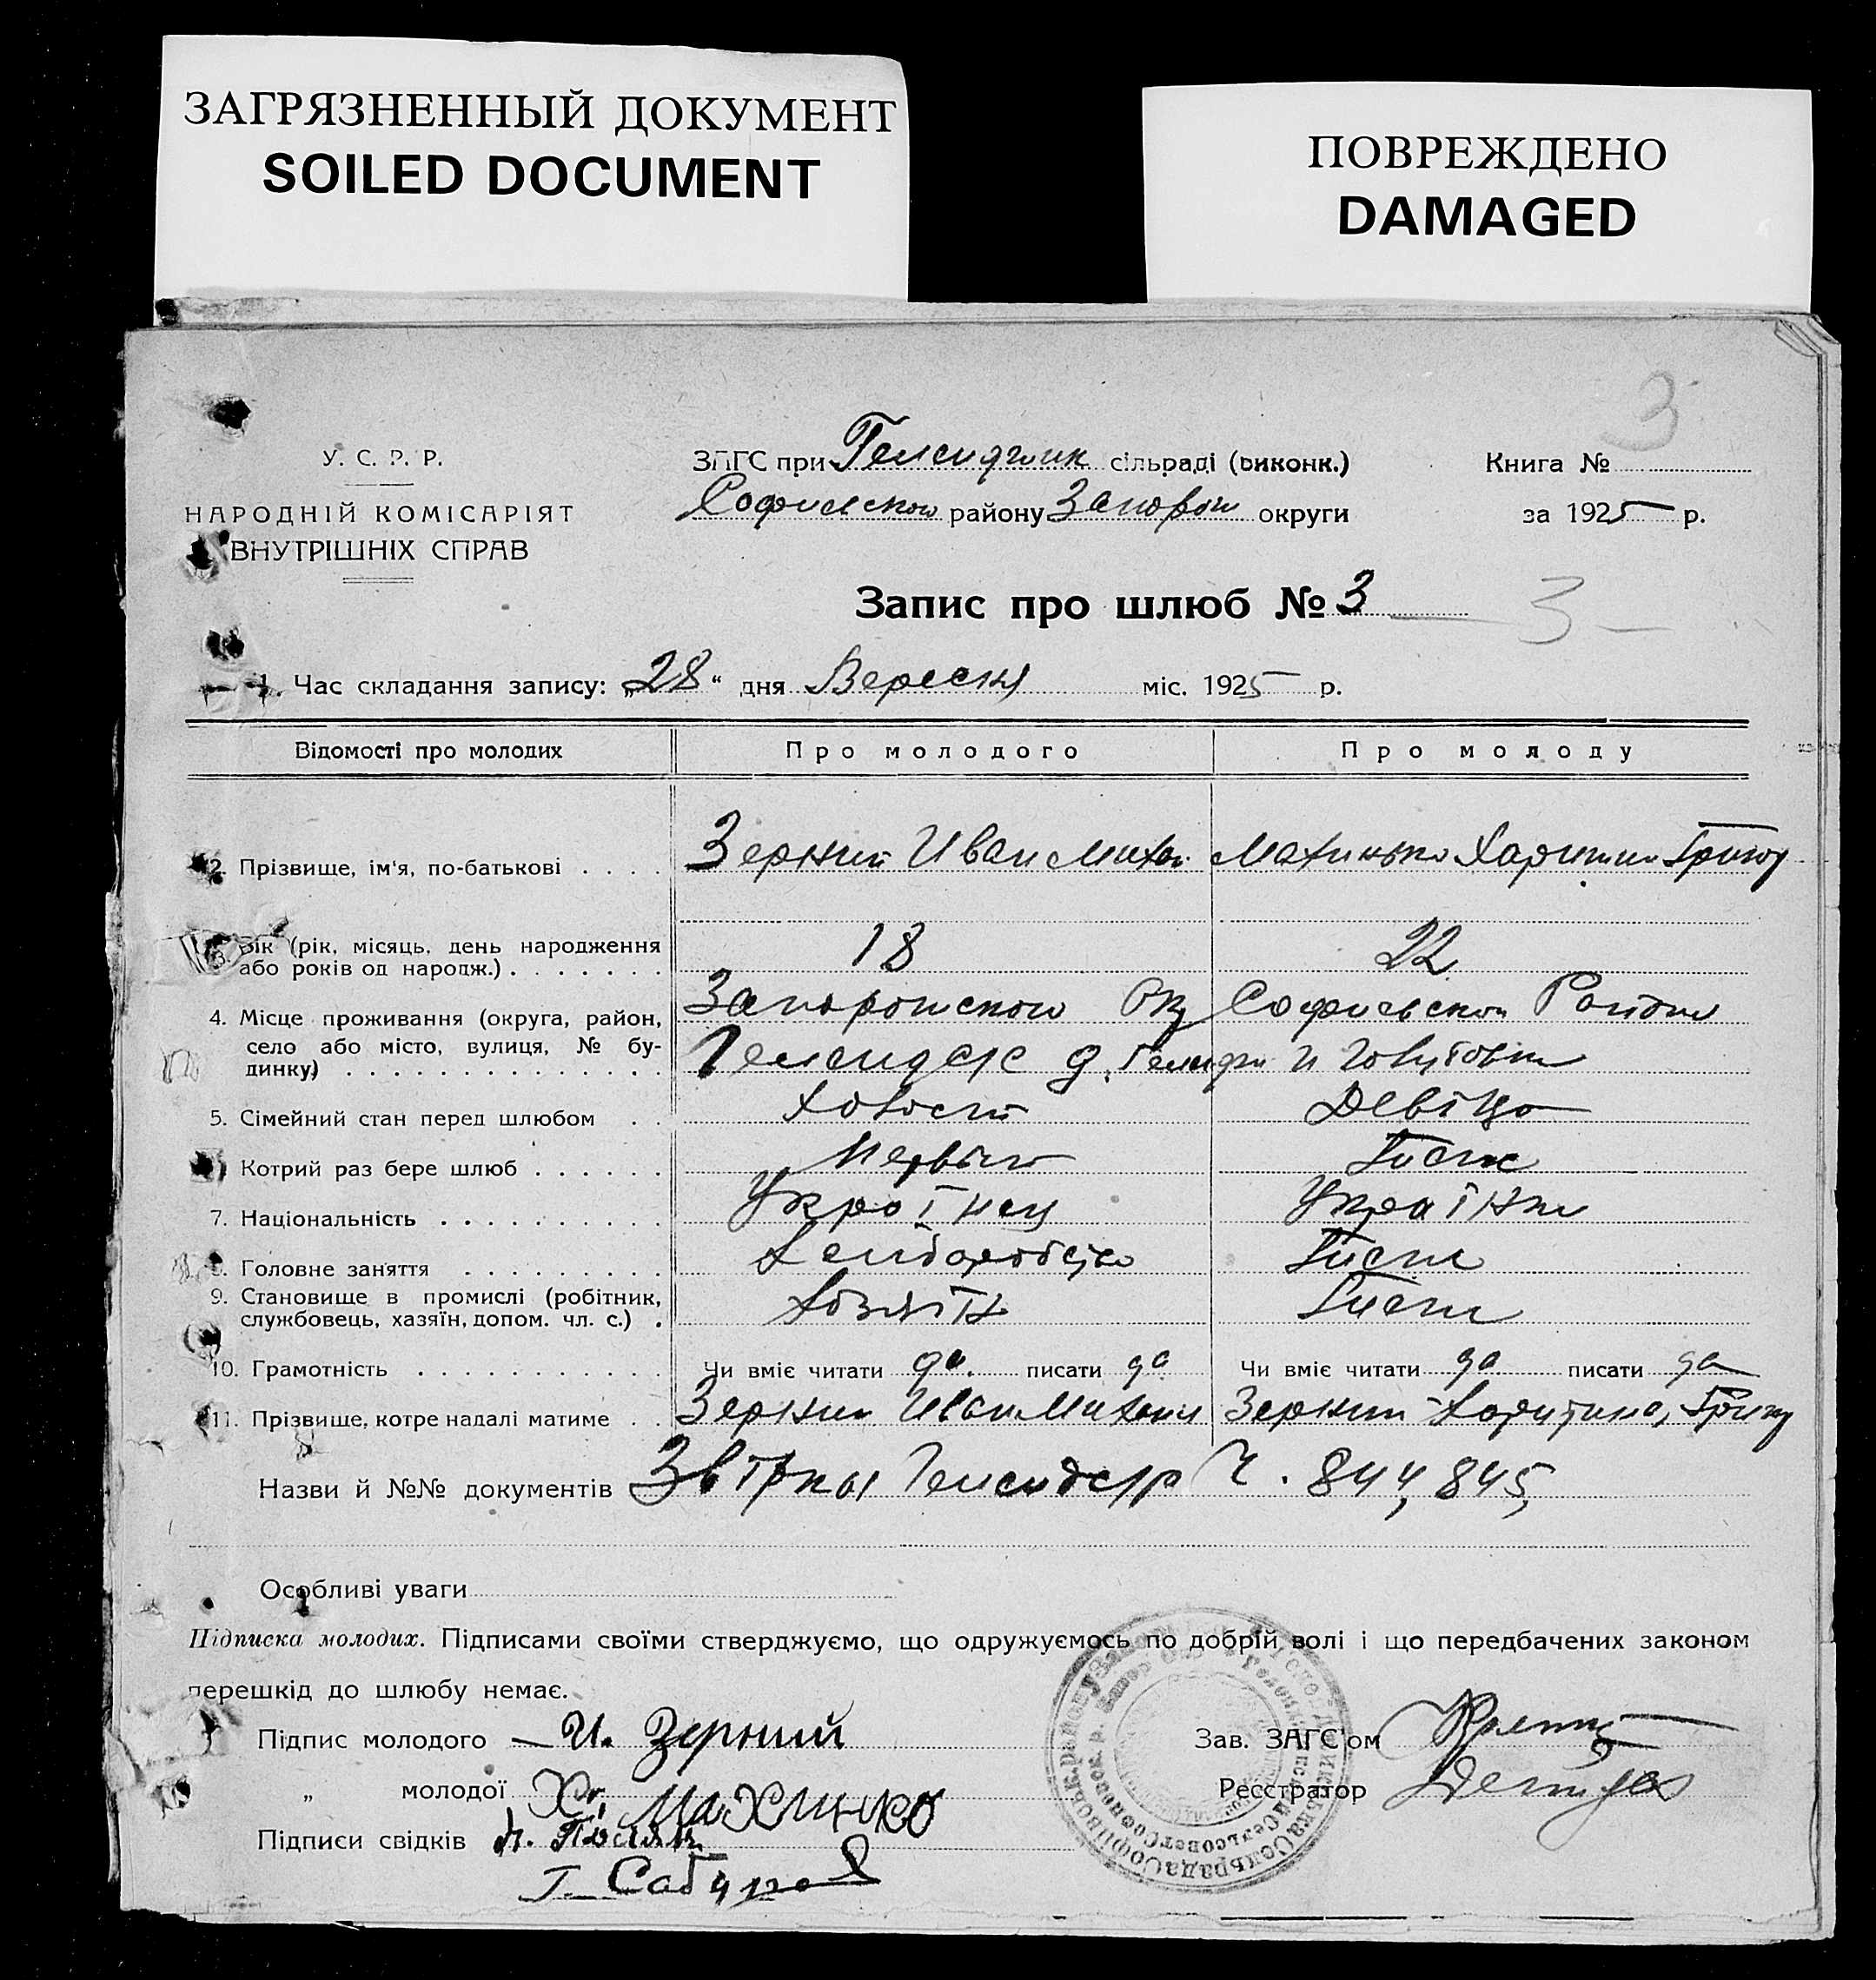 ЗАГРЯЗНЕННЫЙ ДОКУМЕНТ
SOILED DOCUMENT
ПОВРЕЖДЕНО
DAMAGED
3
У. С. Р. Р.
НАРОДНІЙ КОМІСАРІЯТ
ВНУТРІШНІХ СПРАВ
ЗАГС при сільраді (виконк.)
району округи
Книга №
за 1925 р.
Запис про шлюб № 3
3
1. Час складання запису: „28“ дня Вересня міс. 1925 р.
Відомості про молодих Про молодого Про молоду
2. Прізвище, ім'я, по-батькові Зерний Иван Михай Махинько Харитин Григор
3. Вік (рік, місяць, день народження або років од народж.) 18 22
4. Місце проживання (округа, район, Запорожского Окр Софиевского Района
село або місто, вулиця, № будинку)
5. Сімейний стан перед шлюбом Девіца
6. Котрий раз бере шлюб Первый Тоже
7. Національність Українец Українка
8. Головне заняття Тоже
9. Становище в промислі (робітник, службовець, хазяїн, допом. чл. с.) Хозяїн Тоже
10. Грамотність Чи вміє читати да писати да Чи вміє читати да писати да
11. Прізвище, котре надалі матиме Зерний Иван Михаил Зерний Харитина, Григор
Назви й №№ документів Ч. 844, 845,
Особливі уваги
Підписка молодих. Підписами своїми стверджуємо, що одружуємось по добрій волі і що передбачених законом
перешкід до шлюбу немає.
Підпис молодого И. Зерний
„ молодої Х. Махинко
Підписи свідків
Зав. ЗАГС'ом
Реєстратор